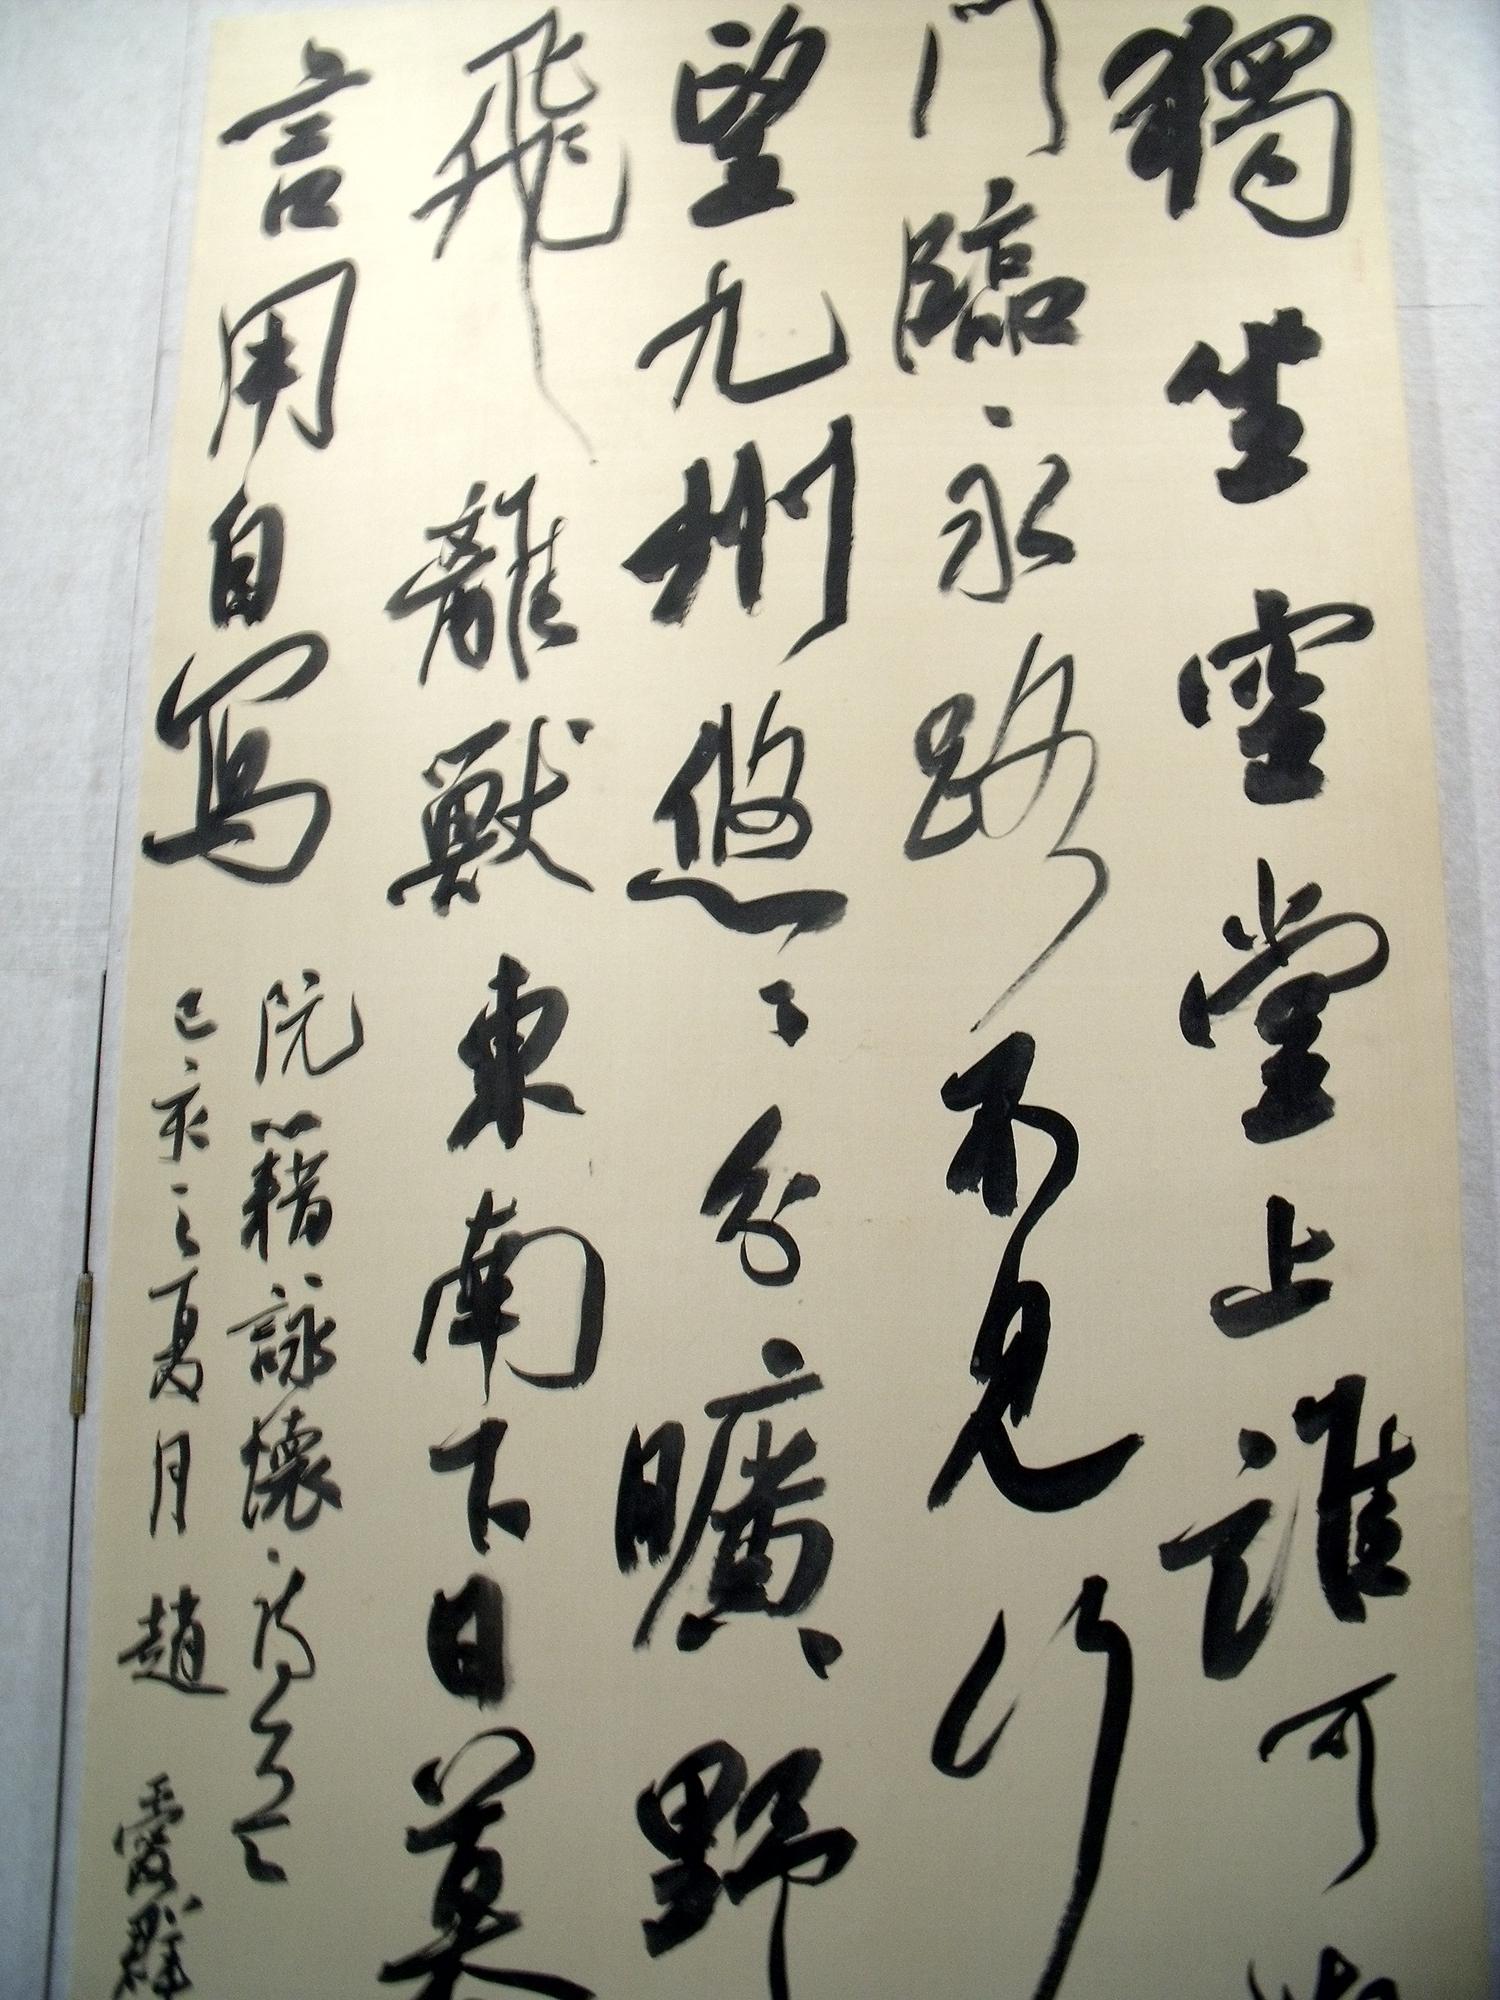 獨坐空堂上誰可
門臨永路不見行
望九州悠々分曠野
飛離獸東南下日莫
言用自寫
阮籍詠懷詩
己亥之夏月趙